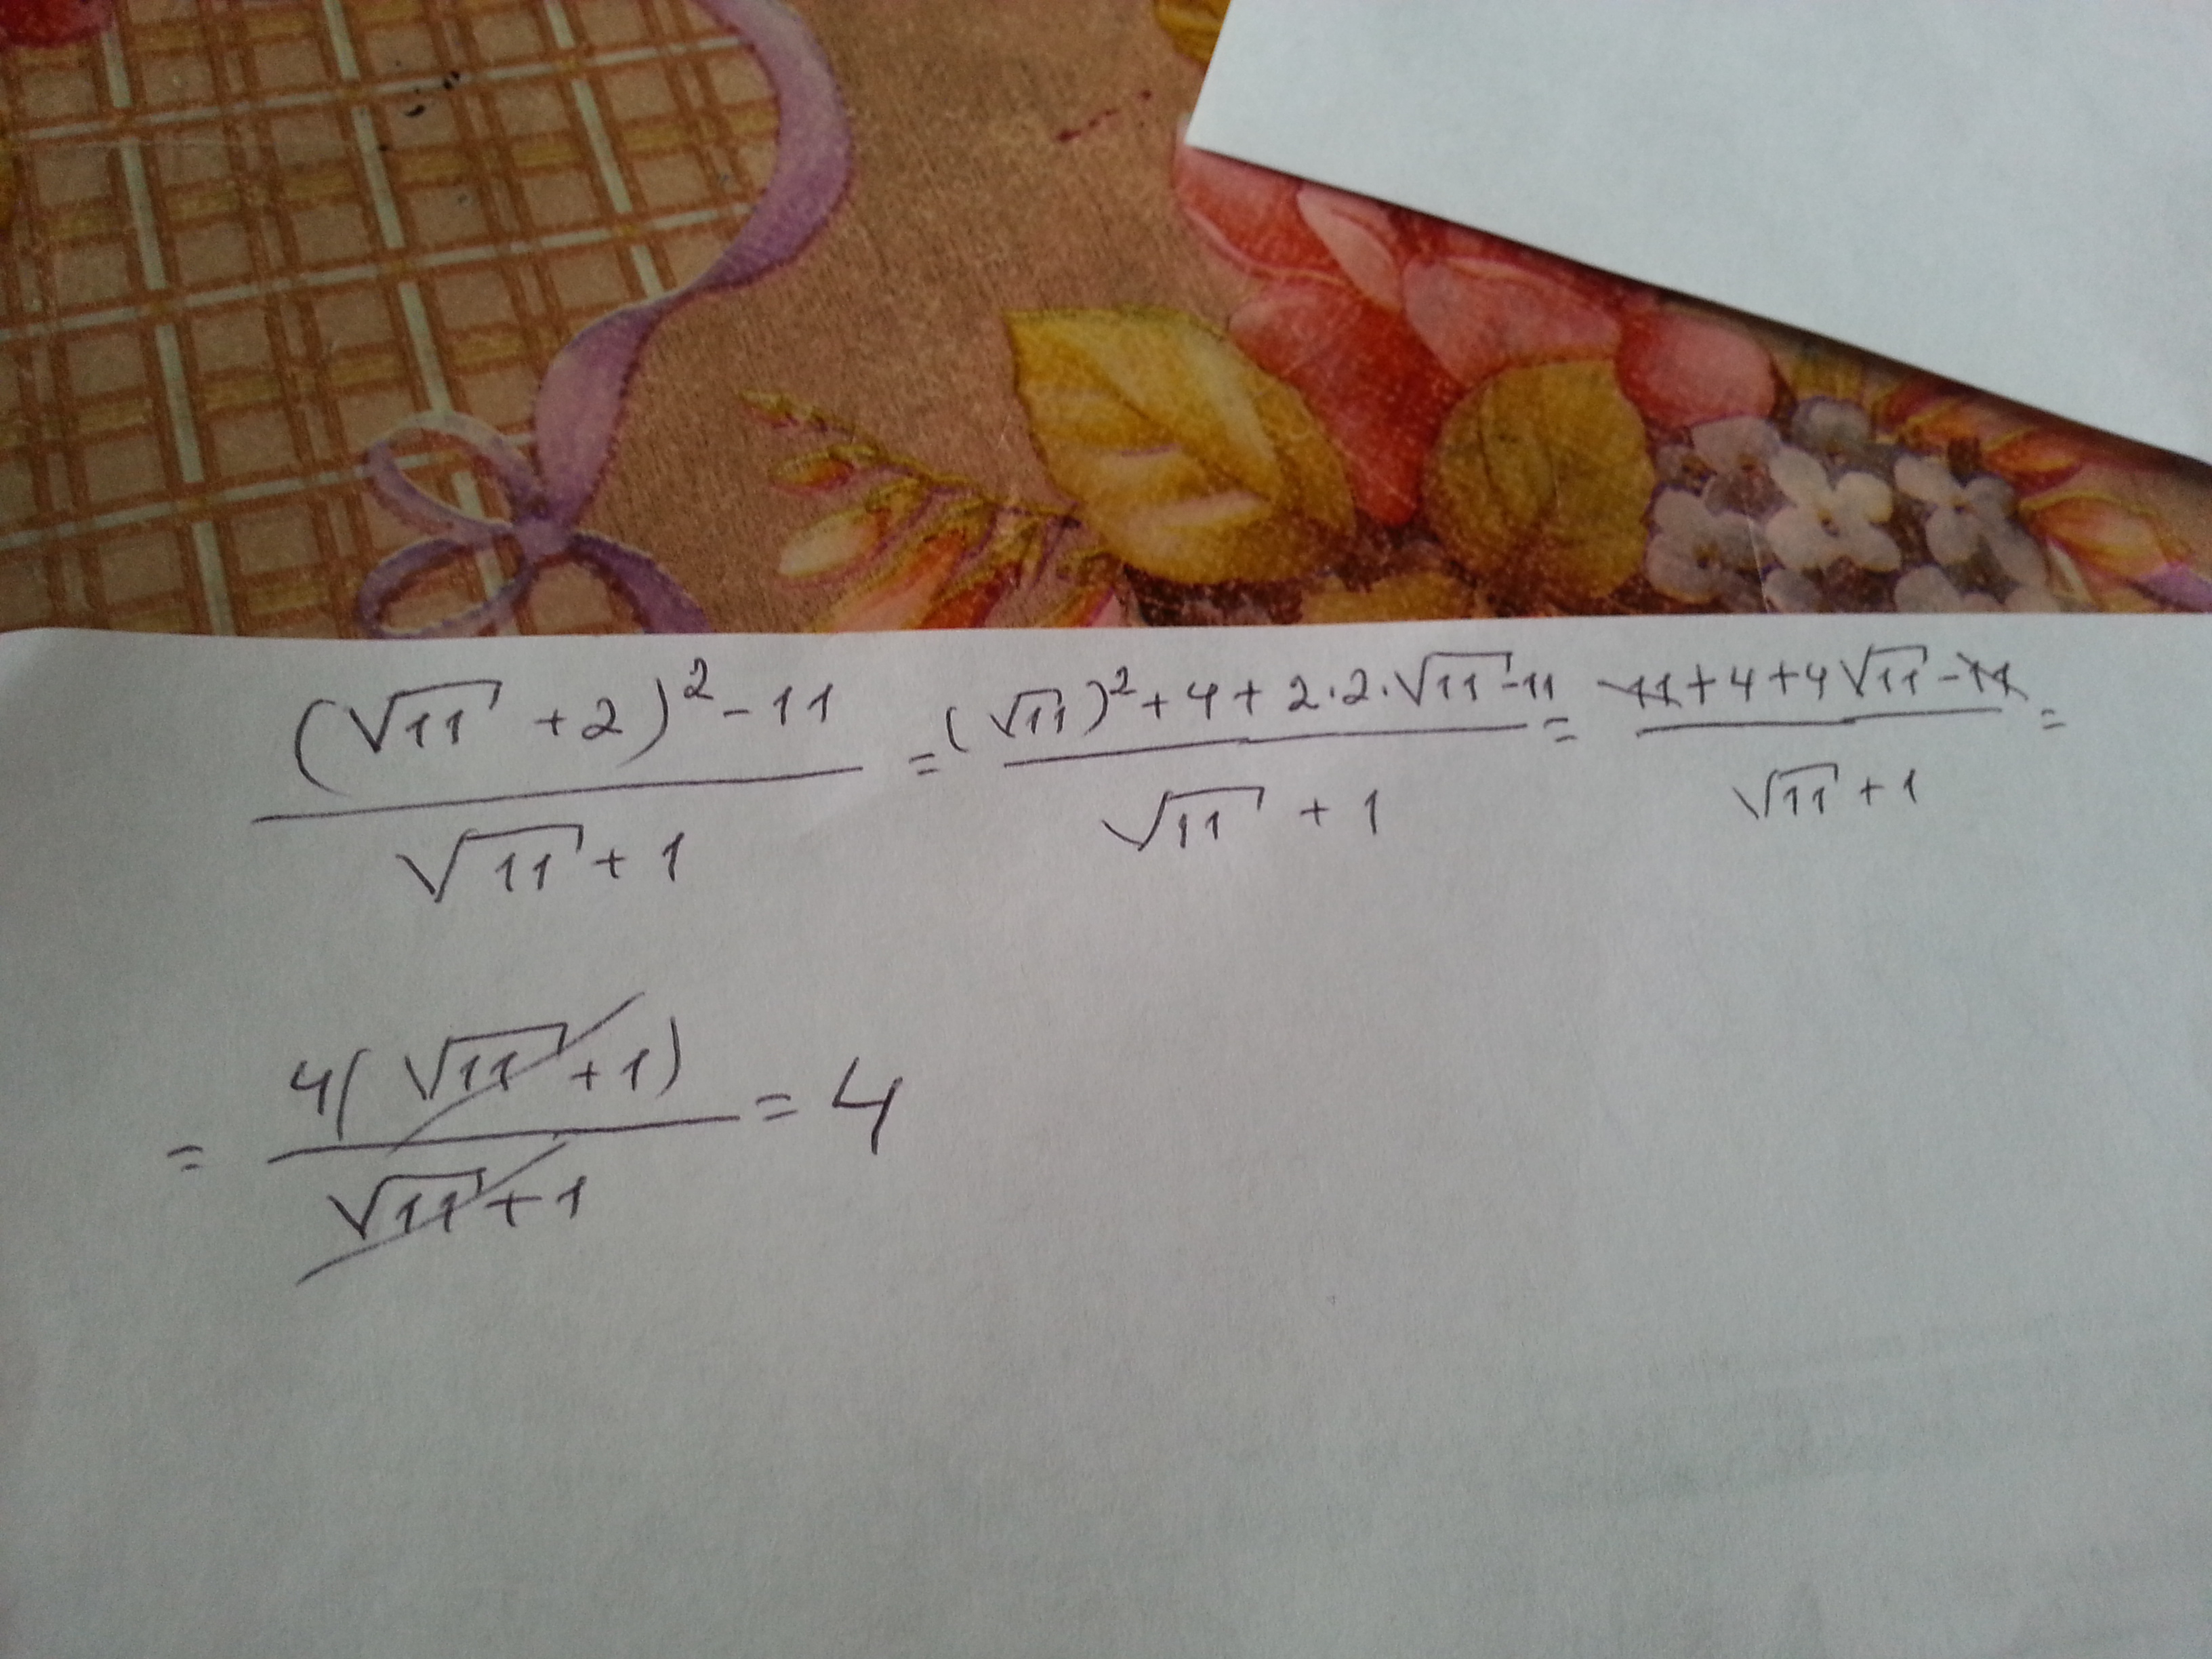 ((√11 + 2)² - 11) / (√11 + 1) = ((√11)² + 4 + 2·2·√11 - 11) / (√11 + 1) = (11 + 4 + 4√11 - 11) / (√11 + 1) =
= 4(√11 + 1) / (√11 + 1) = 4